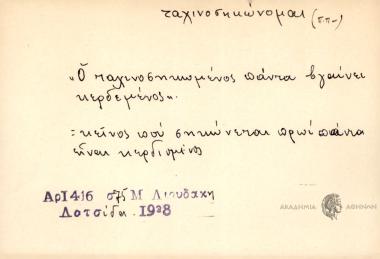 ταχινοσηκώνομαι (τ.π.–)
«Ὁ ταχινοσηκωμένος πάντα βγαίνει
κερδεμένος».
= κεῖνος ποὺ σηκώνεται πρωὶ πάντα
εἶναι κερδισμένος
Αρ1416 σ75 Μ Λιουδακη
Λατσίδα 1938
ΑΚΑΔΗΜΙΑ ΑΘΗΝΩΝ